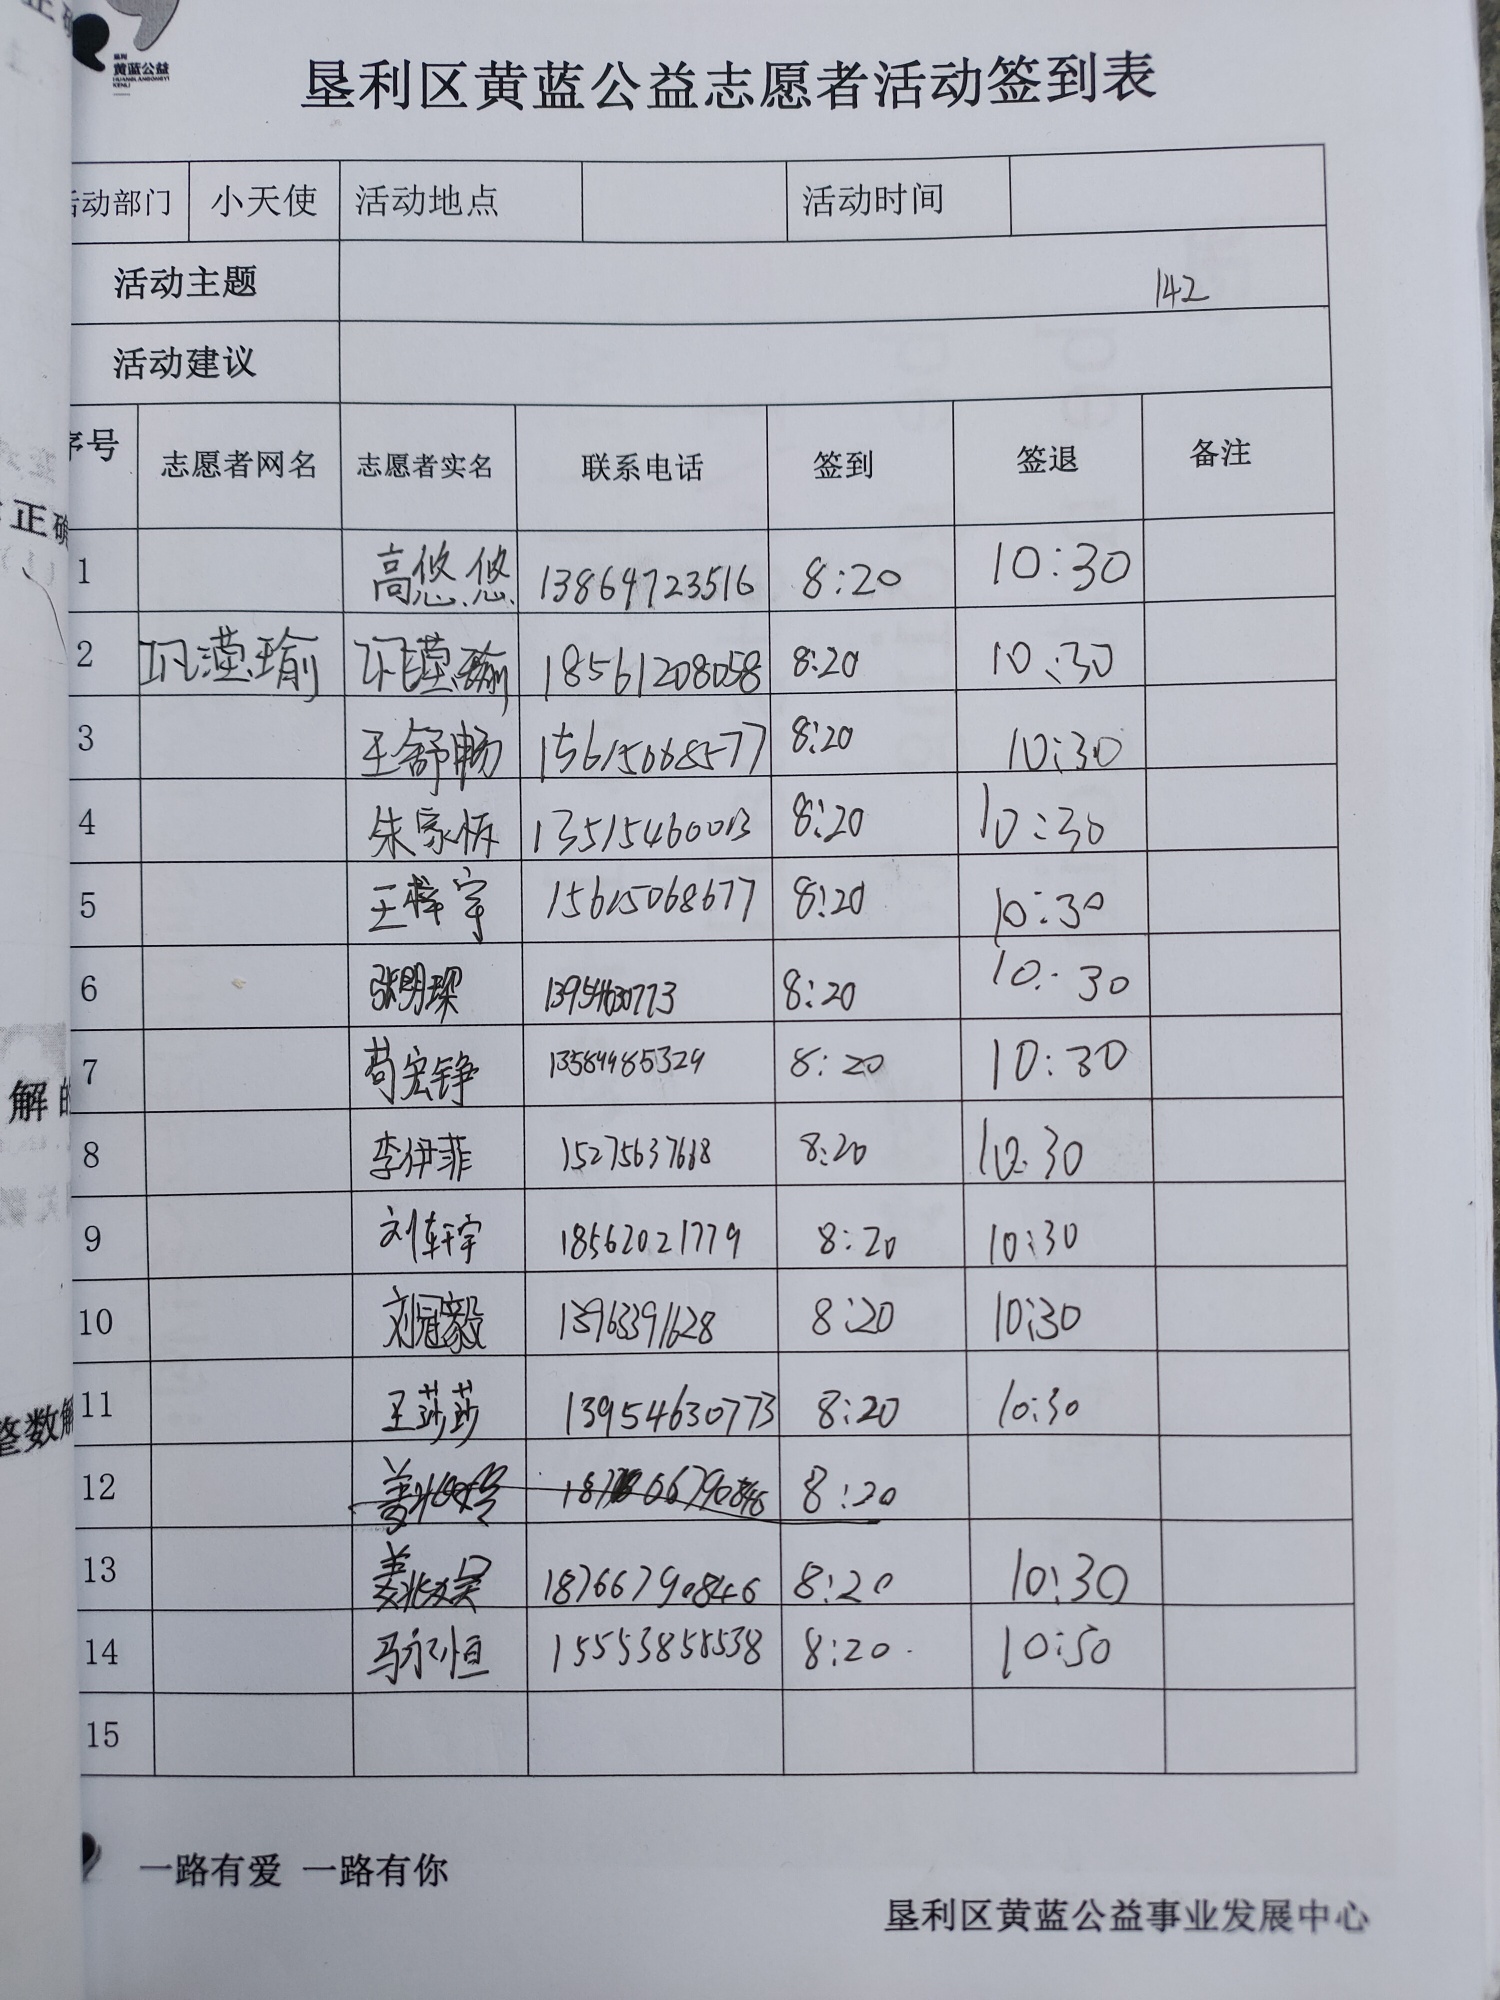 垦利
黄蓝公益
HUANGLANGONGYI
KENLI
垦利区黄蓝公益志愿者活动签到表
活动部门 小天使 活动地点 活动时间
活动主题 142
活动建议
序号 志愿者网名 志愿者实名 联系电话 签到 签退 备注
1 高悠悠 13864723516 8:20 10:30
2 巩瑾瑜 巩瑾瑜 18561208058 8:20 10:30
3 王舒畅 15615068577 8:20 10:30
4 朱家 13515460013 8:20 10:30
5 王梓宇 15615068677 8:20 10:30
6 张明琛 13954630773 8:20 10:30
7 苟宏铮 13589985329 8:20 10:30
8 李伊菲 15275637668 8:20 10:30
9 刘轩宇 18562021779 8:20 10:30
10 刘冠毅 13963391628 8:20 10:30
11 王莎莎 13954630773 8:20 10:30
12 8:20
13 姜 18766790846 8:20 10:30
14 马永恒 15553858538 8:20 10:50
15
一路有爱 一路有你
垦利区黄蓝公益事业发展中心
正确
解的
整数解